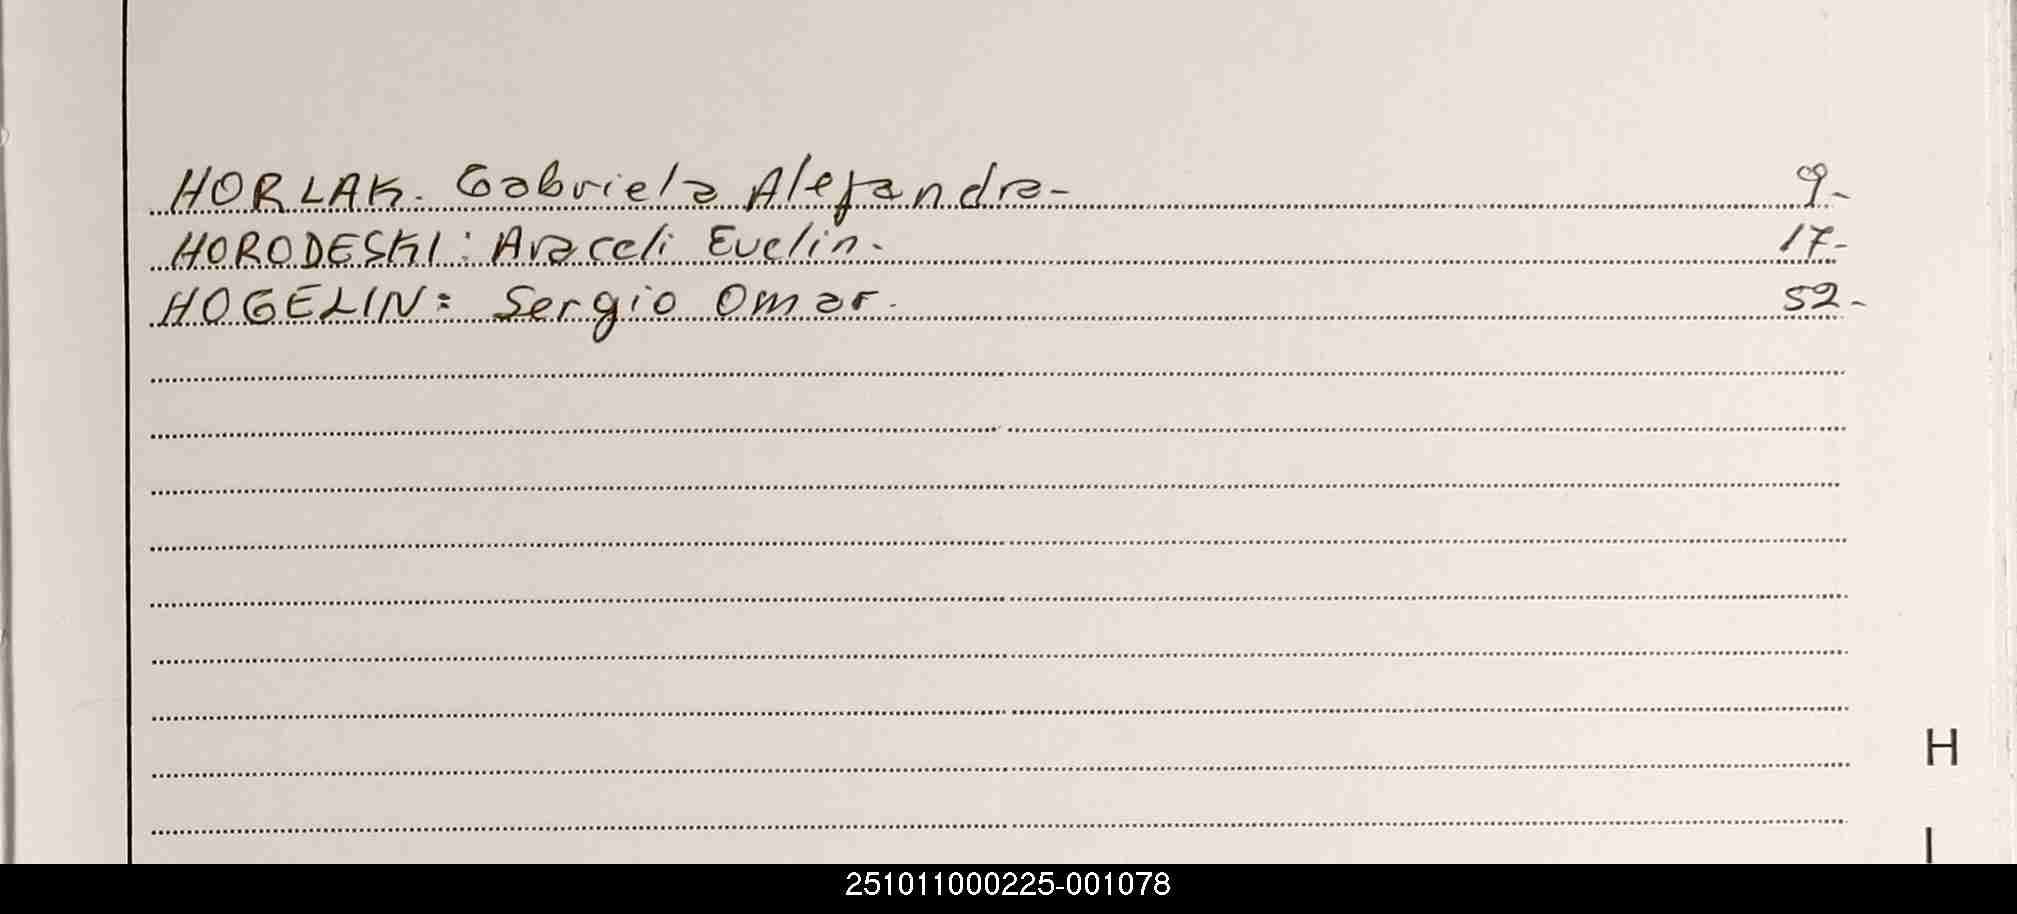 HORLAK. Gabriela Alejandra- 9-
HORODESKI: Araceli Evelin. 17-
HOGELIN: Sergio Omar. 52-
H
I
251011000225-001078